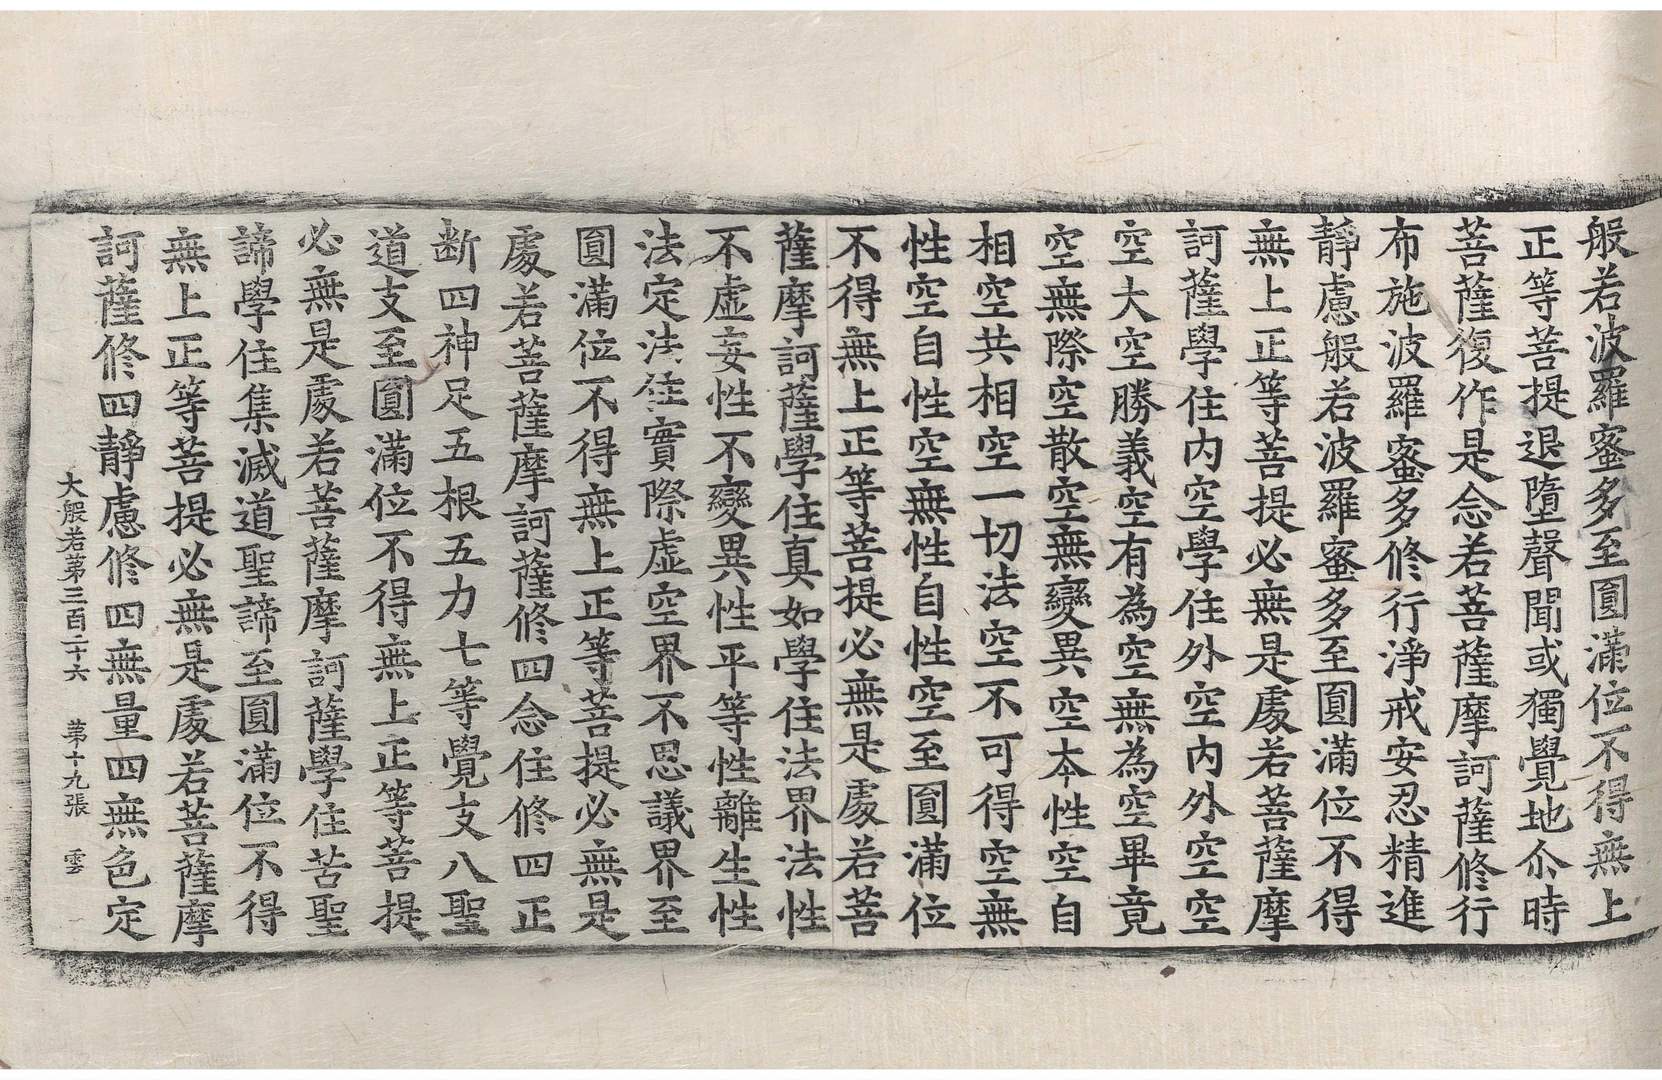 般若波羅蜜多至圓滿位不得無上
正等菩提退墮聲聞或獨覺地尒時
菩薩復作是念若菩薩摩訶薩修行
布施波羅蜜多修行淨戒安忍精進
靜慮般若波羅蜜多至圓滿位不得
無上正等菩提必無是處若菩薩摩
訶薩學住內空學住外空內外空空
空大空勝義空有為空無為空畢竟
空無際空散空無變異空本性空自
相空共相空一切法空不可得空無
性空自性空無性自性空至圓滿位
不得無上正等菩提必無是處若菩
薩摩訶薩學住真如學住法界法性
不虛妄性不變異性平等性離生性
法定法住實際虛空界不思議界至
圓滿位不得無上正等菩提必無是
處若菩薩摩訶薩修四念住修四正
断四神足五根五力七等覺支八聖
道支至圓滿位不得無上正等菩提
必無是處若菩薩摩訶薩學住苦聖
諦學住集滅道聖諦至圓滿位不得
無上正等菩提必無是處若菩薩摩
訶薩修四靜慮修四無量四無色定
大般若第三百二十六 第十九張 雲